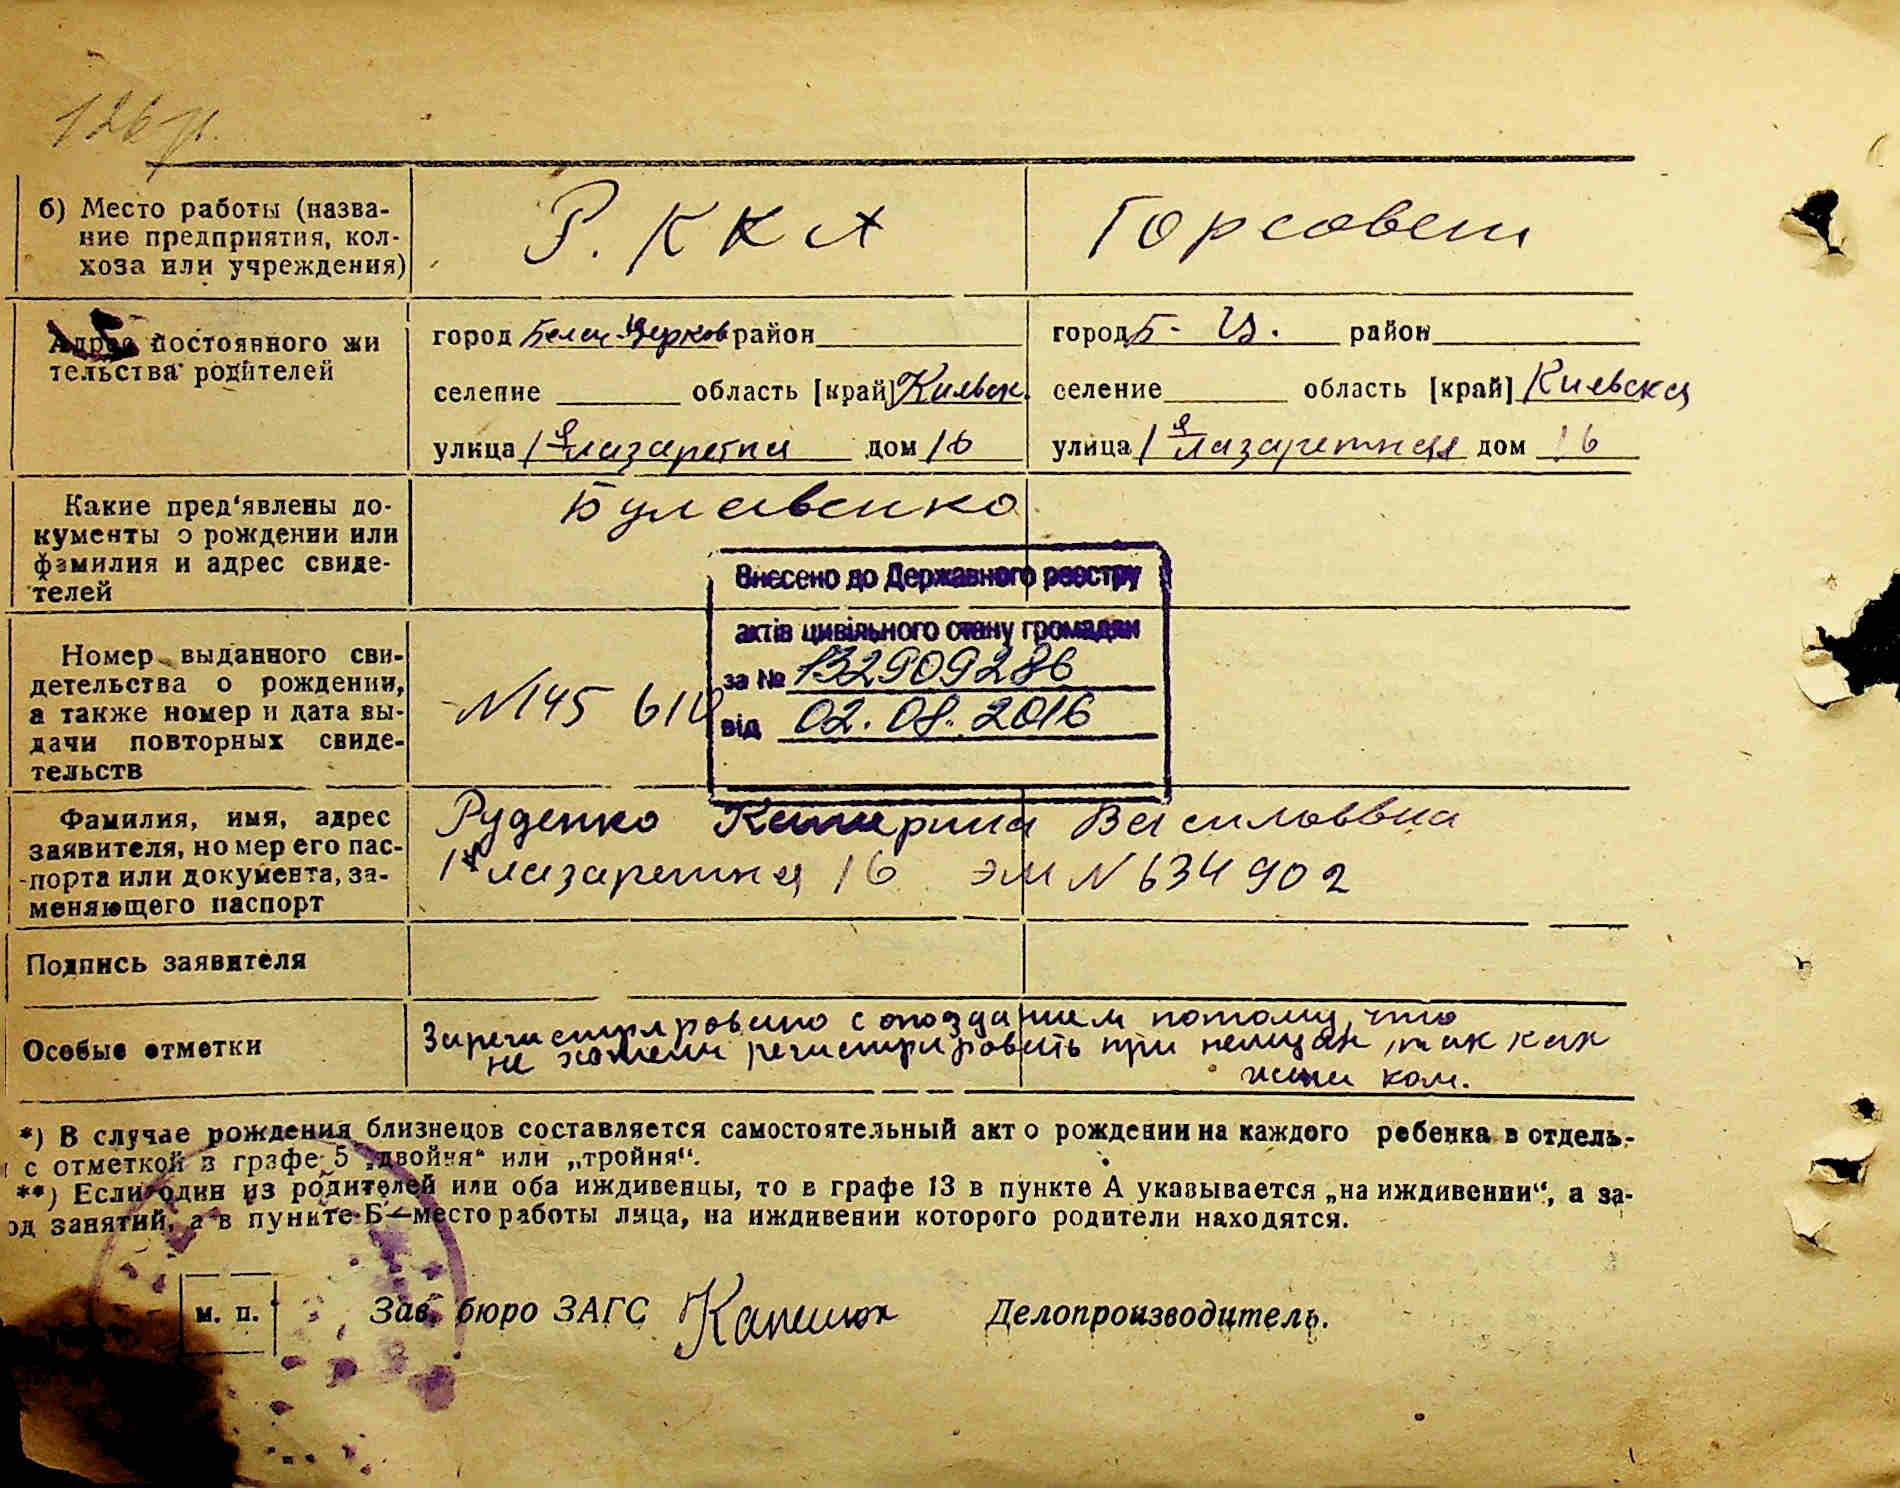 б) Место работы (назва-
ние предприятия, кол-
хоза или учреждения)
Р. К К А
Горсовет
Адрес постоянного жи
тельства родителей
город Белая Церков район
селение область [край] Киевск.
улица 1я Лазаретна дом 16
город Б. Ц. район
селение область [край] Киевска
улица 1я Лазаретная дом 16
Какие пред‘явлены до-
кументы о рождении или
фамилия и адрес свиде-
телей
Булавенко
Внесено до Державного реєстру
актів цивільного стану громадян
за № 132909286
від 02.08.2016
Номер выданного сви-
детельства о рождении,
а также номер и дата вы-
дачи повторных свиде-
тельств
N 145
Фамилия, имя, адрес
заявителя, но мер его пас-
порта или документа, за-
меняющего паспорт
Руденко Катерина Васильевна
1я Лазаретна 16 ЭМ N 634902
Подпись заявителя
Особые отметки
Зарегистрировано с опозданием потому, что
не хотели регистрировать при немцах, так как
ком.
*) В случае рождения близнецов составляется самостоятельный акт о рождении на каждого ребенка в отдель-
с отметкой в графе 5 „двойня“ или „тройня“.
**) Если один из родителей или оба иждивенцы, то в графе 13 в пункте А указывается „на иждивении“, а за-
од занятий, а в пункте Б—место работы лица, на иждивении которого родители находятся.
м. п.
Зав. бюро ЗАГС
Делопроизводитель.